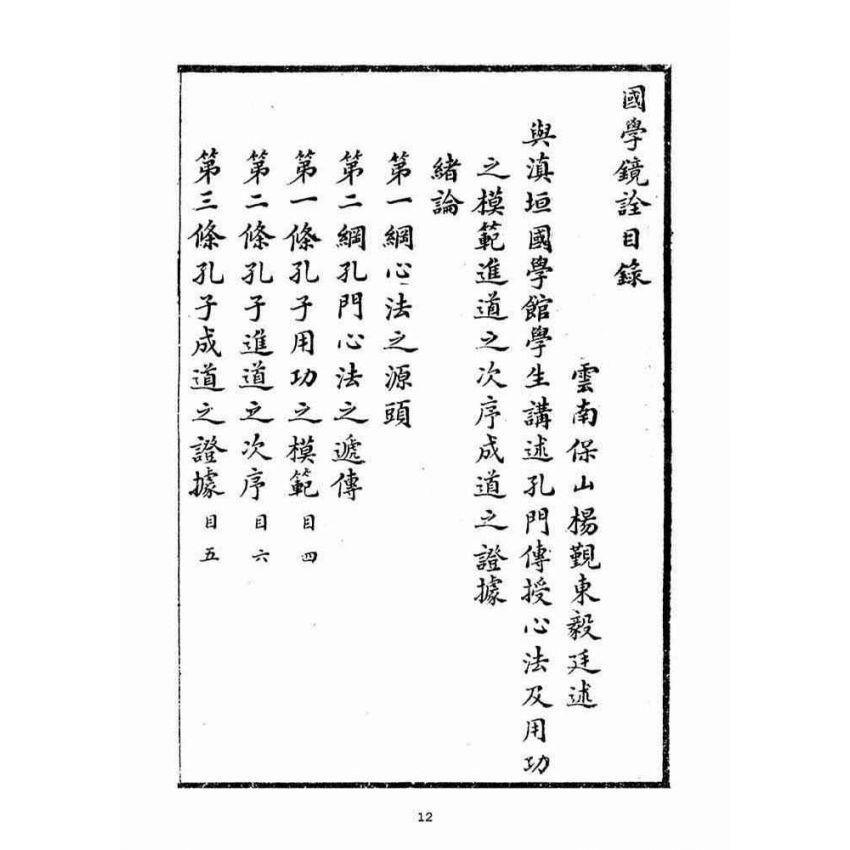 國學鏡詮目錄
雲南保山楊覲東毅廷述
與滇垣國學館學生講述孔門傳授心法及用功
之模範進道之次序成道之證據
緒論
第一綱心法之源頭
第二綱孔門心法之遞傳
第一條孔子用功之模範目四
第二條孔子進道之次序目六
第三條孔子成道之證據目五
12